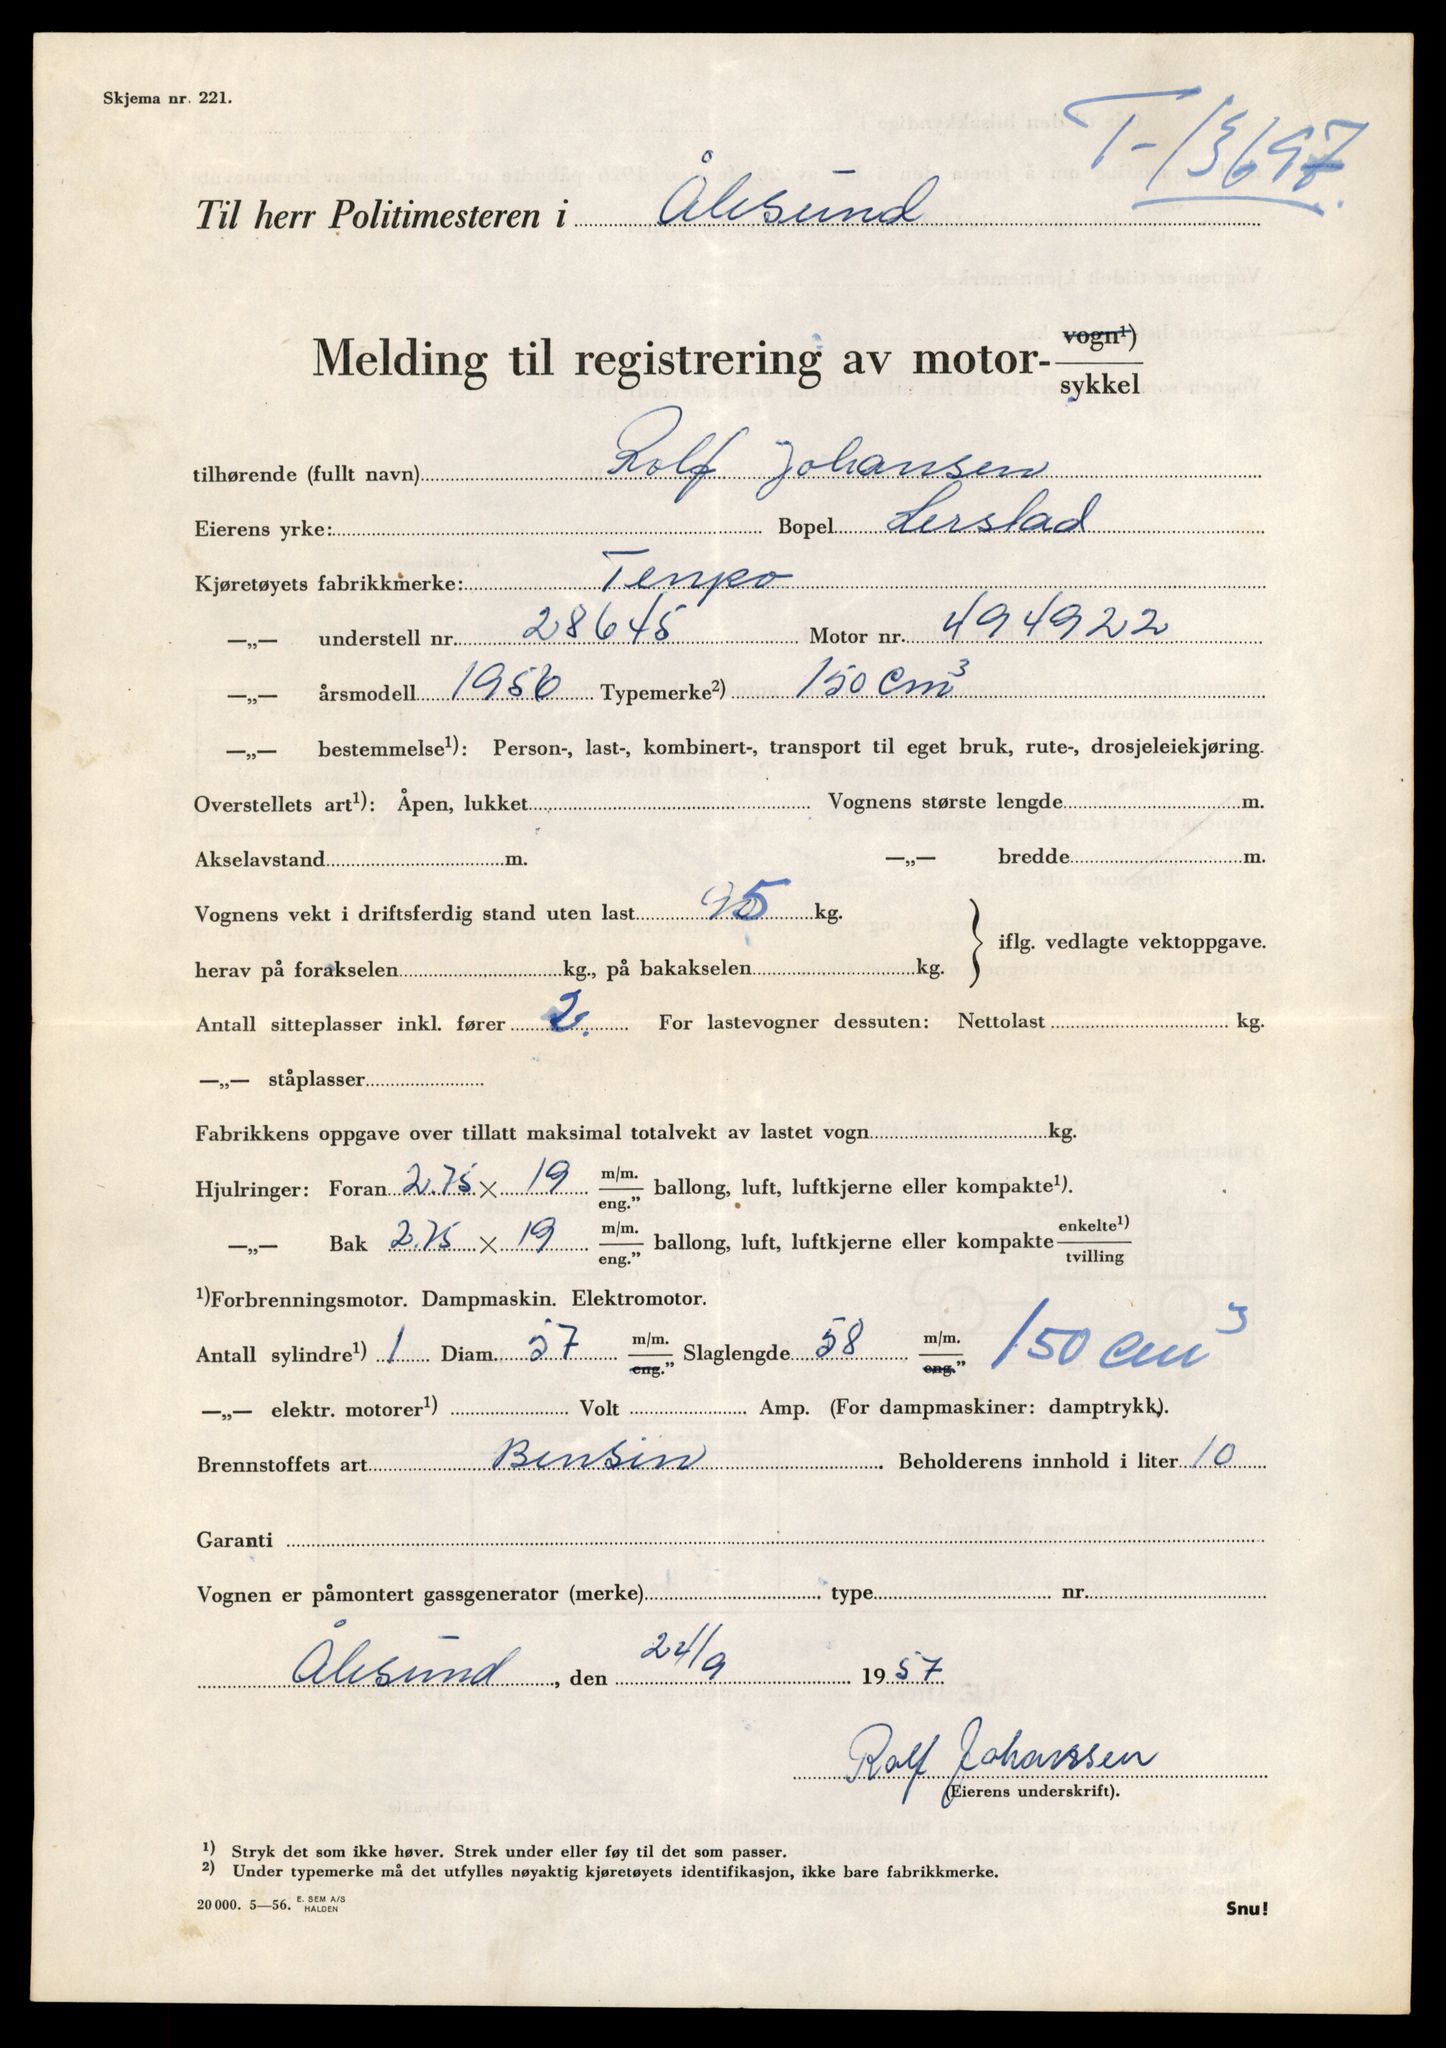 Skjema nr. 221.
T-13697
Til herr Politimesteren i Ålesund
Melding til registrering av motor- vogn¹) / sykkel
tilhørende (fullt navn) Rolf Johansen
Eierens yrke: Bopel Lerstad
Kjøretøyets fabrikkmerke: Tempo
—„— understell nr. 28645 Motor nr. 494922
—„— årsmodell 1956 Typemerke²) 150 cm³
—„— bestemmelse¹): Person-, last-, kombinert-, transport til eget bruk, rute-, drosjeleiekjøring.
Overstellets art¹): Åpen, lukket Vognens største lengde m.
Akselavstand m. —„— bredde m.
Vognens vekt i driftsferdig stand uten last 95 kg.
herav på forakselen kg., på bakakselen kg. } iflg. vedlagte vektoppgave.
Antall sitteplasser inkl. fører 2. For lastevogner dessuten: Nettolast kg.
—„— ståplasser
Fabrikkens oppgave over tillatt maksimal totalvekt av lastet vogn kg.
Hjulringer: Foran 2.75 × 19 m/m. / eng.” ballong, luft, luftkjerne eller kompakte¹).
—„— Bak 2.75 × 19 m/m. / eng.” ballong, luft, luftkjerne eller kompakte enkelte¹) / tvilling
¹)Forbrenningsmotor. Dampmaskin. Elektromotor.
Antall sylindre¹) 1 Diam. 57 m/m. / eng.” Slaglengde 58 m/m. / eng.” 150 cm³
—„— elektr. motorer¹) Volt Amp. (For dampmaskiner: damptrykk).
Brennstoffets art Bensin Beholderens innhold i liter 10
Garanti
Vognen er påmontert gassgenerator (merke) type nr.
Ålesund, den 24/9 1957
Rolf Johanssen
(Eierens underskrift).
¹) Stryk det som ikke høver. Strek under eller føy til det som passer.
²) Under typemerke må det utfylles nøyaktig kjøretøyets identifikasjon, ikke bare fabrikkmerke.
20 000. 5—56. E. SEM A/S HALDEN
Snu!